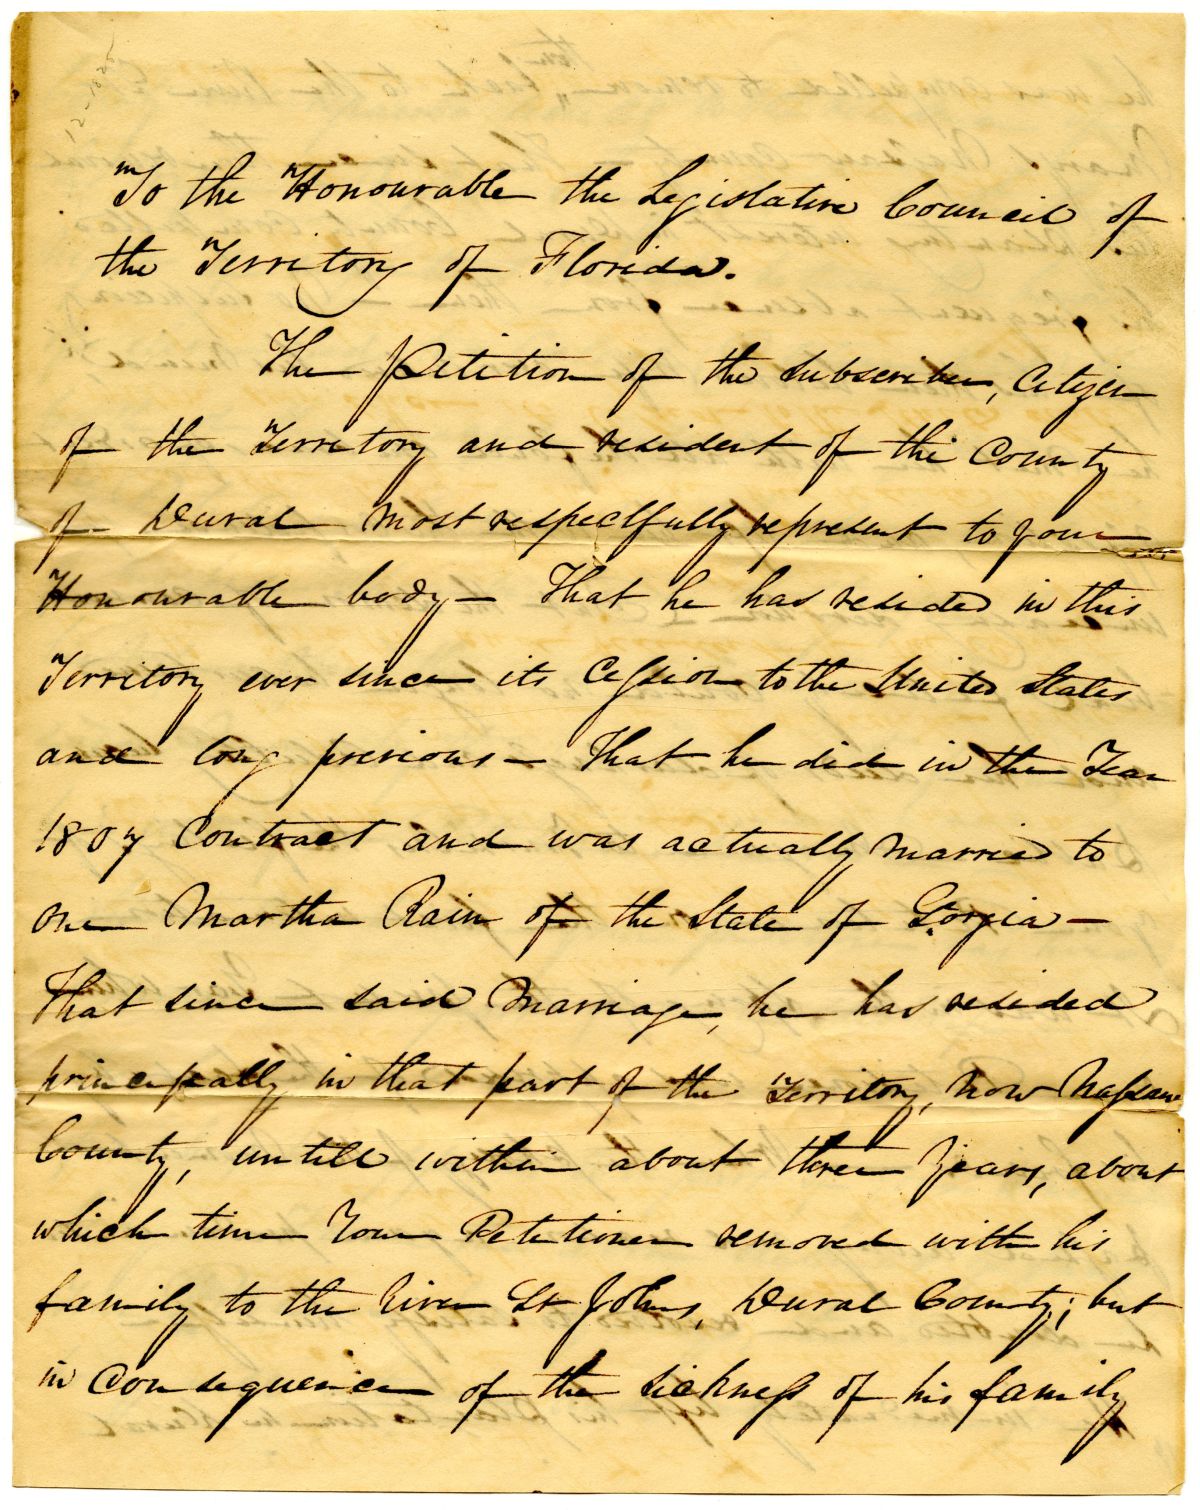 12-1825
To the Honourable the Legislative Council of
the Territory of Florida.
The Petition of the subscriber, Citizen
of the Territory and resident of the County
of Duval most respectfully represent to your
Honourable body— That he has resided in this
Territory ever since its Cession to the United States
and long previous— That he did in the Year
1807 Contract and was actually married to
one Martha Rain of the State of Georgia—
That since said Marriage, he has resided
principally in that part of the Territory, now Nassau
County, untill within about three Years, about
which time Your Petitioner removed with his
family to the River St Johns, Duval County; but
in Consequence of the sickness of his family